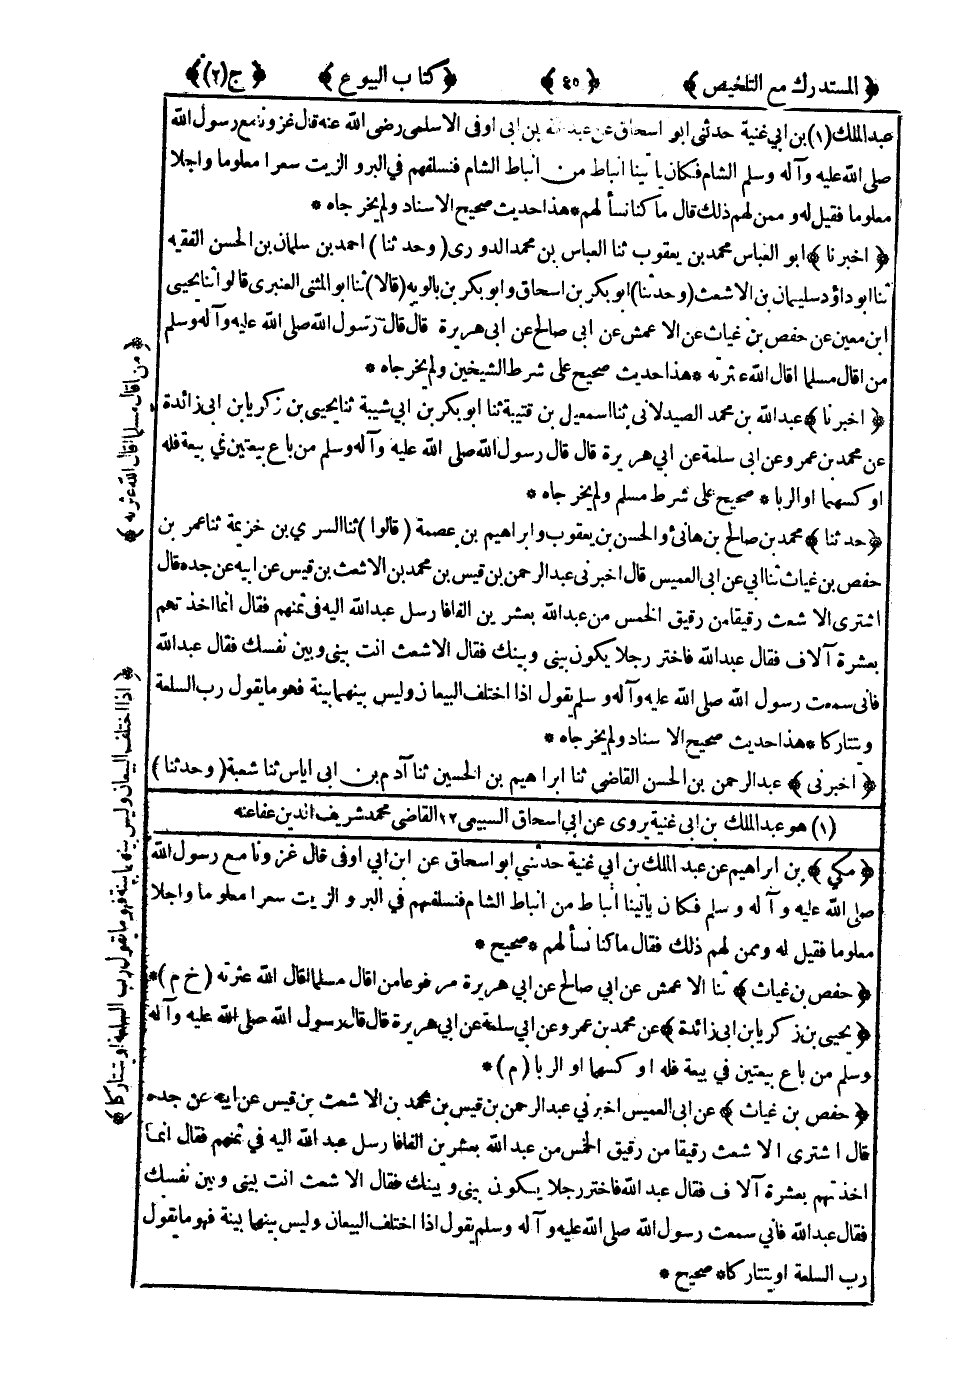 ﴿ المستدرك مع التلخيص ﴾ ﴿ ٤٥ ﴾ ﴿ كتاب البيوع ﴾ ﴿ ج (٢) ﴾
عبد الملك (١) بن ابي غنية حدثنى ابو اسحاق عن عبد الله بن ابى اوفى الاسلمى رضى الله عنه قال غزونا مع رسول الله
صلى الله عليه وآله وسلم الشام فكان يأتينا انباط من انباط الشام فنسلفهم في البر والزيت سعرا معلوما واجلا
معلوما فقيل له وممن لهم ذلك قال ما كنا نسألهم * هذا حديث صحيح الاسناد ولم يخرجاه *
﴿ اخبرنا ﴾ ابو العباس محمد بن يعقوب ثنا العباس بن محمد الدورى (وحدثنا) احمد بن سلمان بن الحسن الفقيه
ثنا ابو داؤد سليمان بن الاشعث (وحدثنا) ابو بكر بن اسحاق وابو بكر بن بالويه (قالا) ثنا ابو المثنى العنبرى قالوا ثنا يحيى
ابن معين عن حفص بن غياث عن الاعمش عن ابى صالح عن ابى هريرة قال قال رسول الله صلى الله عليه وآله وسلم
من اقال مسلما اقال الله عثرته * هذا حديث صحيح على شرط الشيخين ولم يخرجاه *
﴿ اخبرنا ﴾ عبد الله بن محمد الصيدلانى ثنا اسمعيل بن قتيبة ثنا ابو بكر بن ابي شيبة ثنا يحيى بن زكريا بن ابى زائدة
عن محمد بن عمرو عن ابى سلمة عن ابي هريرة قال قال رسول الله صلى الله عليه وآله وسلم من باع بيعتين في بيعة فله
اوكسهما او الربا * صحيح على شرط مسلم ولم يخرجاه *
﴿ حدثنا ﴾ محمد بن صالح بن هانئ والحسن بن يعقوب وابراهيم بن عصمة (قالوا) ثنا السري بن خزيمة ثنا عمر بن
حفص بن غياث ثنا ابي عن ابى العميس قال اخبرنى عبد الرحمن بن قيس بن محمد بن الاشعث بن قيس عن ابيه عن جده قال
اشترى الاشعث رقيقا من رقيق الخمس من عبد الله بعشرين الفا فارسل عبد الله اليه فى ثمنهم فقال انما اخذتهم
بعشرة آلاف فقال عبد الله فاختر رجلا يكون بينى وبينك فقال الاشعث انت بينى وبين نفسك فقال عبد الله
فانى سمعت رسول الله صلى الله عليه وآله وسلم يقول اذا اختلف البيعان وليس بينهما بينة فهو ما يقول رب السلعة
ويتتاركا * هذا حديث صحيح الاسناد ولم يخرجاه *
﴿ اخبرنى ﴾ عبد الرحمن بن الحسن القاضي ثنا ابراهيم بن الحسين ثنا آدم بن ابى اياس ثنا شعبة (وحدثنا)
(١) هو عبد الملك بن ابى غنية يروى عن ابي اسحاق السبيعى ١٢ القاضي محمد شريف الدين عفا عنه
﴿ مكي ﴾ بن ابراهيم عن عبد الملك بن ابي غنية حدثني ابو اسحاق عن ابن ابي اوفى قال غزونا مع رسول الله
صلى الله عليه وآله وسلم فكان يأتينا أنباط من انباط الشام فنسلفهم في البر والزيت سعرا معلوما واجلا
معلوما فقيل له وممن لهم ذلك فقال ما كنا نسألهم * صحيح *
﴿ حفص بن غياث ﴾ ثنا الاعمش عن ابي صالح عن ابي هريرة مرفوعا من اقال مسلما اقال الله عثرته (خ م) *
﴿ يحيى بن زكريا بن ابى زائدة ﴾ عن محمد بن عمرو عن ابي سلمة عن ابي هريرة قال قال رسول الله صلى الله عليه وآله
وسلم من باع بيعتين في بيعة فله اوكسهما او الربا (م) *
﴿ حفص بن غياث ﴾ عن ابى العميس اخبرني عبد الرحمن بن قيس بن محمد بن الاشعث بن قيس عن ابيه عن جده
قال اشترى الاشعث رقيقا من رقيق الخمس من عبد الله بعشرين الفا فارسل عبد الله اليه في ثمنهم فقال انما
اخذتهم بعشرة آلاف فقال عبد الله فاختر رجلا يكون بينى وبينك فقال الاشعث انت بينى وبين نفسك
فقال عبد الله فاني سمعت رسول الله صلى الله عليه وآله وسلم يقول اذا اختلف البيعان وليس بينهما بينة فهو ما يقول
رب السلعة او يتتاركا * صحيح *
﴿ من اقال مسلما اقال الله عثرته ﴾
﴿ اذا اختلف البيعان وليس بينهما بينة فهو ما يقول رب السلعة او يتتاركا ﴾